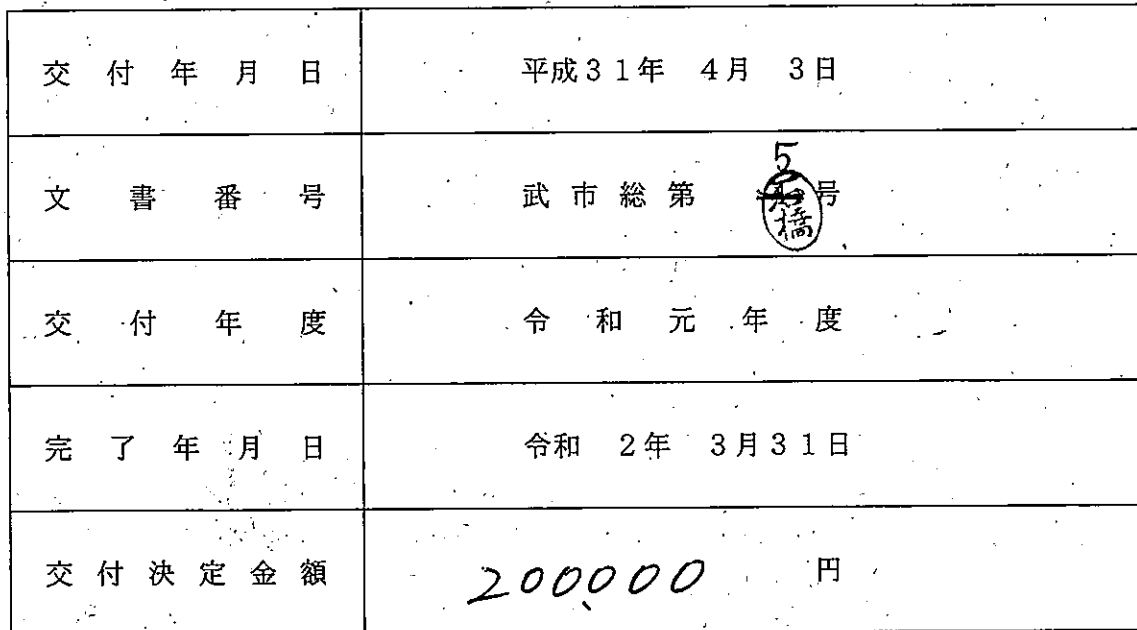 交付年月日 平成31年 4月 3日
文書番号 武市総第 5 号
橋
交付年度 令和元年度
完了年月日 令和 2年 3月31日
交付決定金額 200,000 円